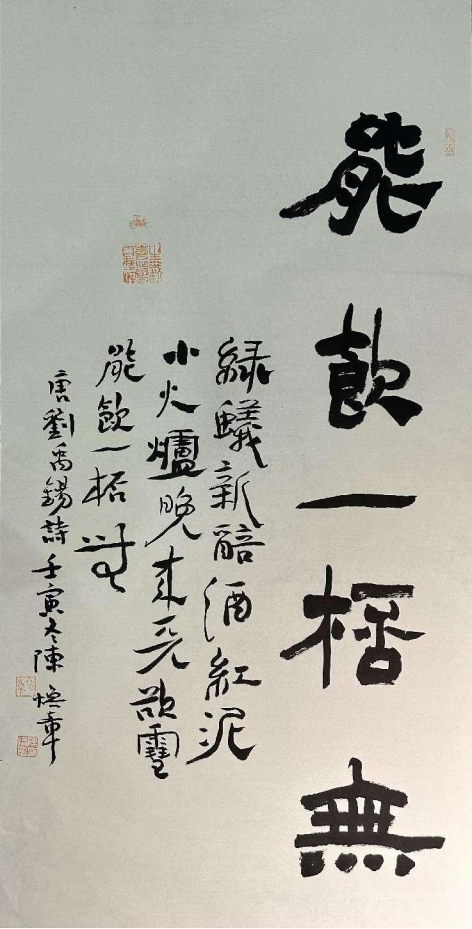 能飲一桮無
綠蟻新醅酒紅泥
小火爐晚來天欲雪
能飲一桮無
唐劉禹錫詩壬寅冬陳章